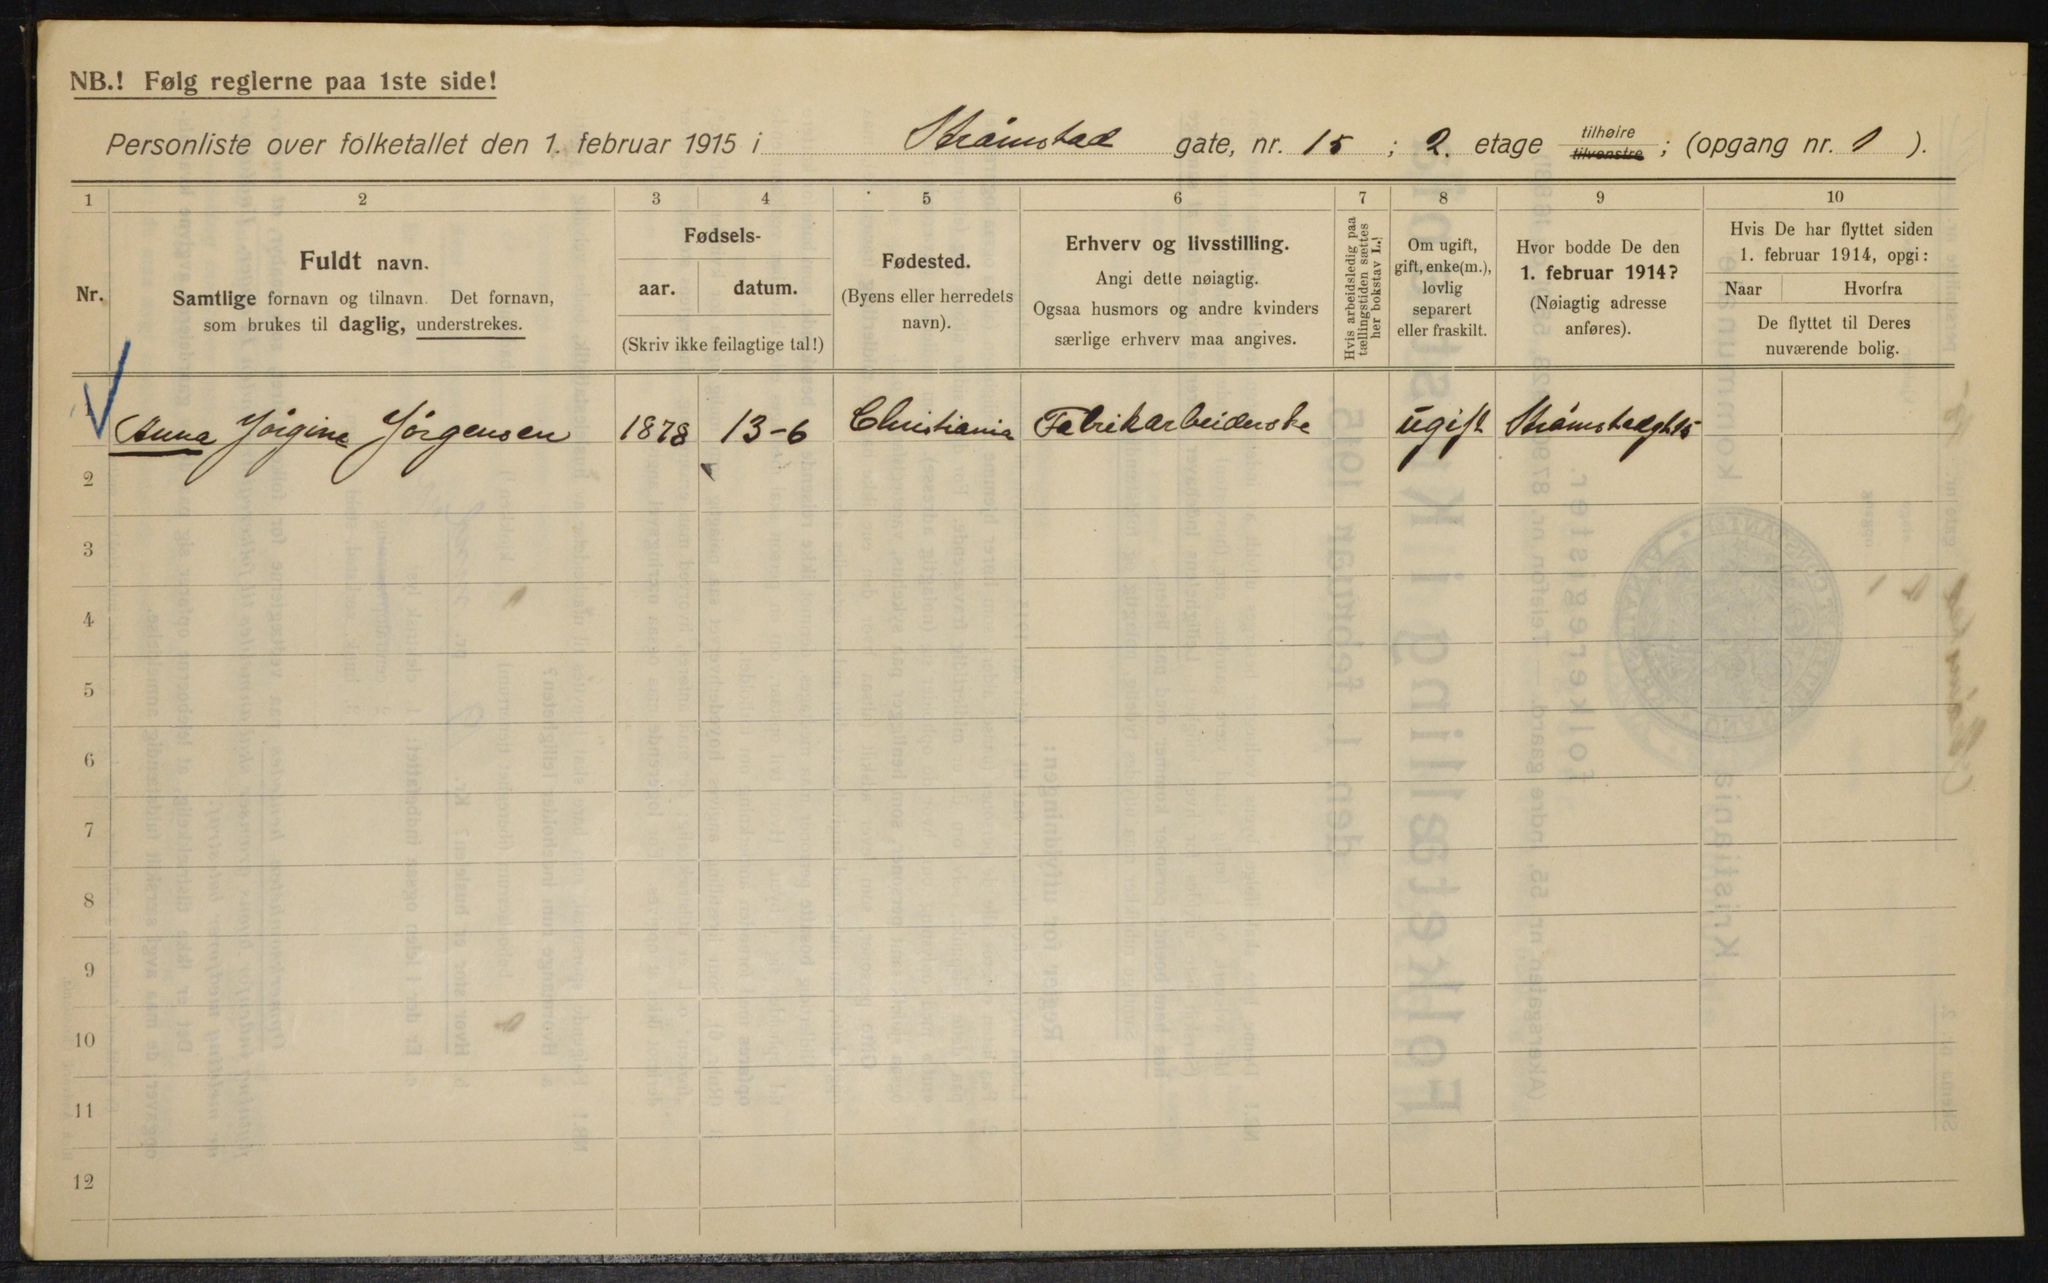 NB.! Følg reglerne paa 1ste side!
Personliste over folketallet den 1. februar 1915 i Strømstad gate, nr. 15 ; 2. etage tilhøire tilvenstre ; (opgang nr. 1 ).
1 2 3 4 5 6 7 8 9 10
Nr.
Fuldt navn.
Samtlige fornavn og tilnavn. Det fornavn,
som brukes til daglig, understrekes.
Fødsels-
aar. datum.
(Skriv ikke feilagtige tal!)
Fødested.
(Byens eller herredets
navn).
Erhverv og livsstilling.
Angi dette nøiagtig.
Ogsaa husmors og andre kvinders
særlige erhverv maa angives.
Hvis arbeidsledig paa
tællingstiden sættes
her bokstav L.!
Om ugift,
gift, enke(m.),
lovlig
separert
eller fraskilt.
Hvor bodde De den
1. februar 1914?
(Nøiagtig adresse
anføres).
Hvis De har flyttet siden
1. februar 1914, opgi:
Naar Hvorfra
De flyttet til Deres
nuværende bolig.
1 Anna Jörgine Jörgensen 1878 13-6 Christiania Fabrikarbeiderske ugift Strömstadgt 15
2
3
4
5
6
7
8
9
10
11
12